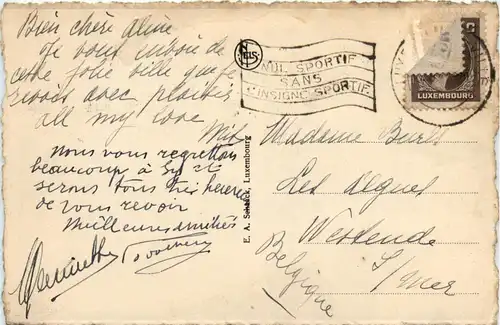 Bien chère Aline
Je vous envoie de
cette jolie ville que je
revois avec plaisir
all my love
Nous vous regrettons
beaucoup à
serons tous très heureux
de vous revoir
Meilleures amitiés
NELS
NUL SPORTIF
SANS
INSIGNE SPORTIF
LUXEMBOURG
E. A. Schaack, Luxembourg
Madame
Les algues
Westende
s/mer
Belgique